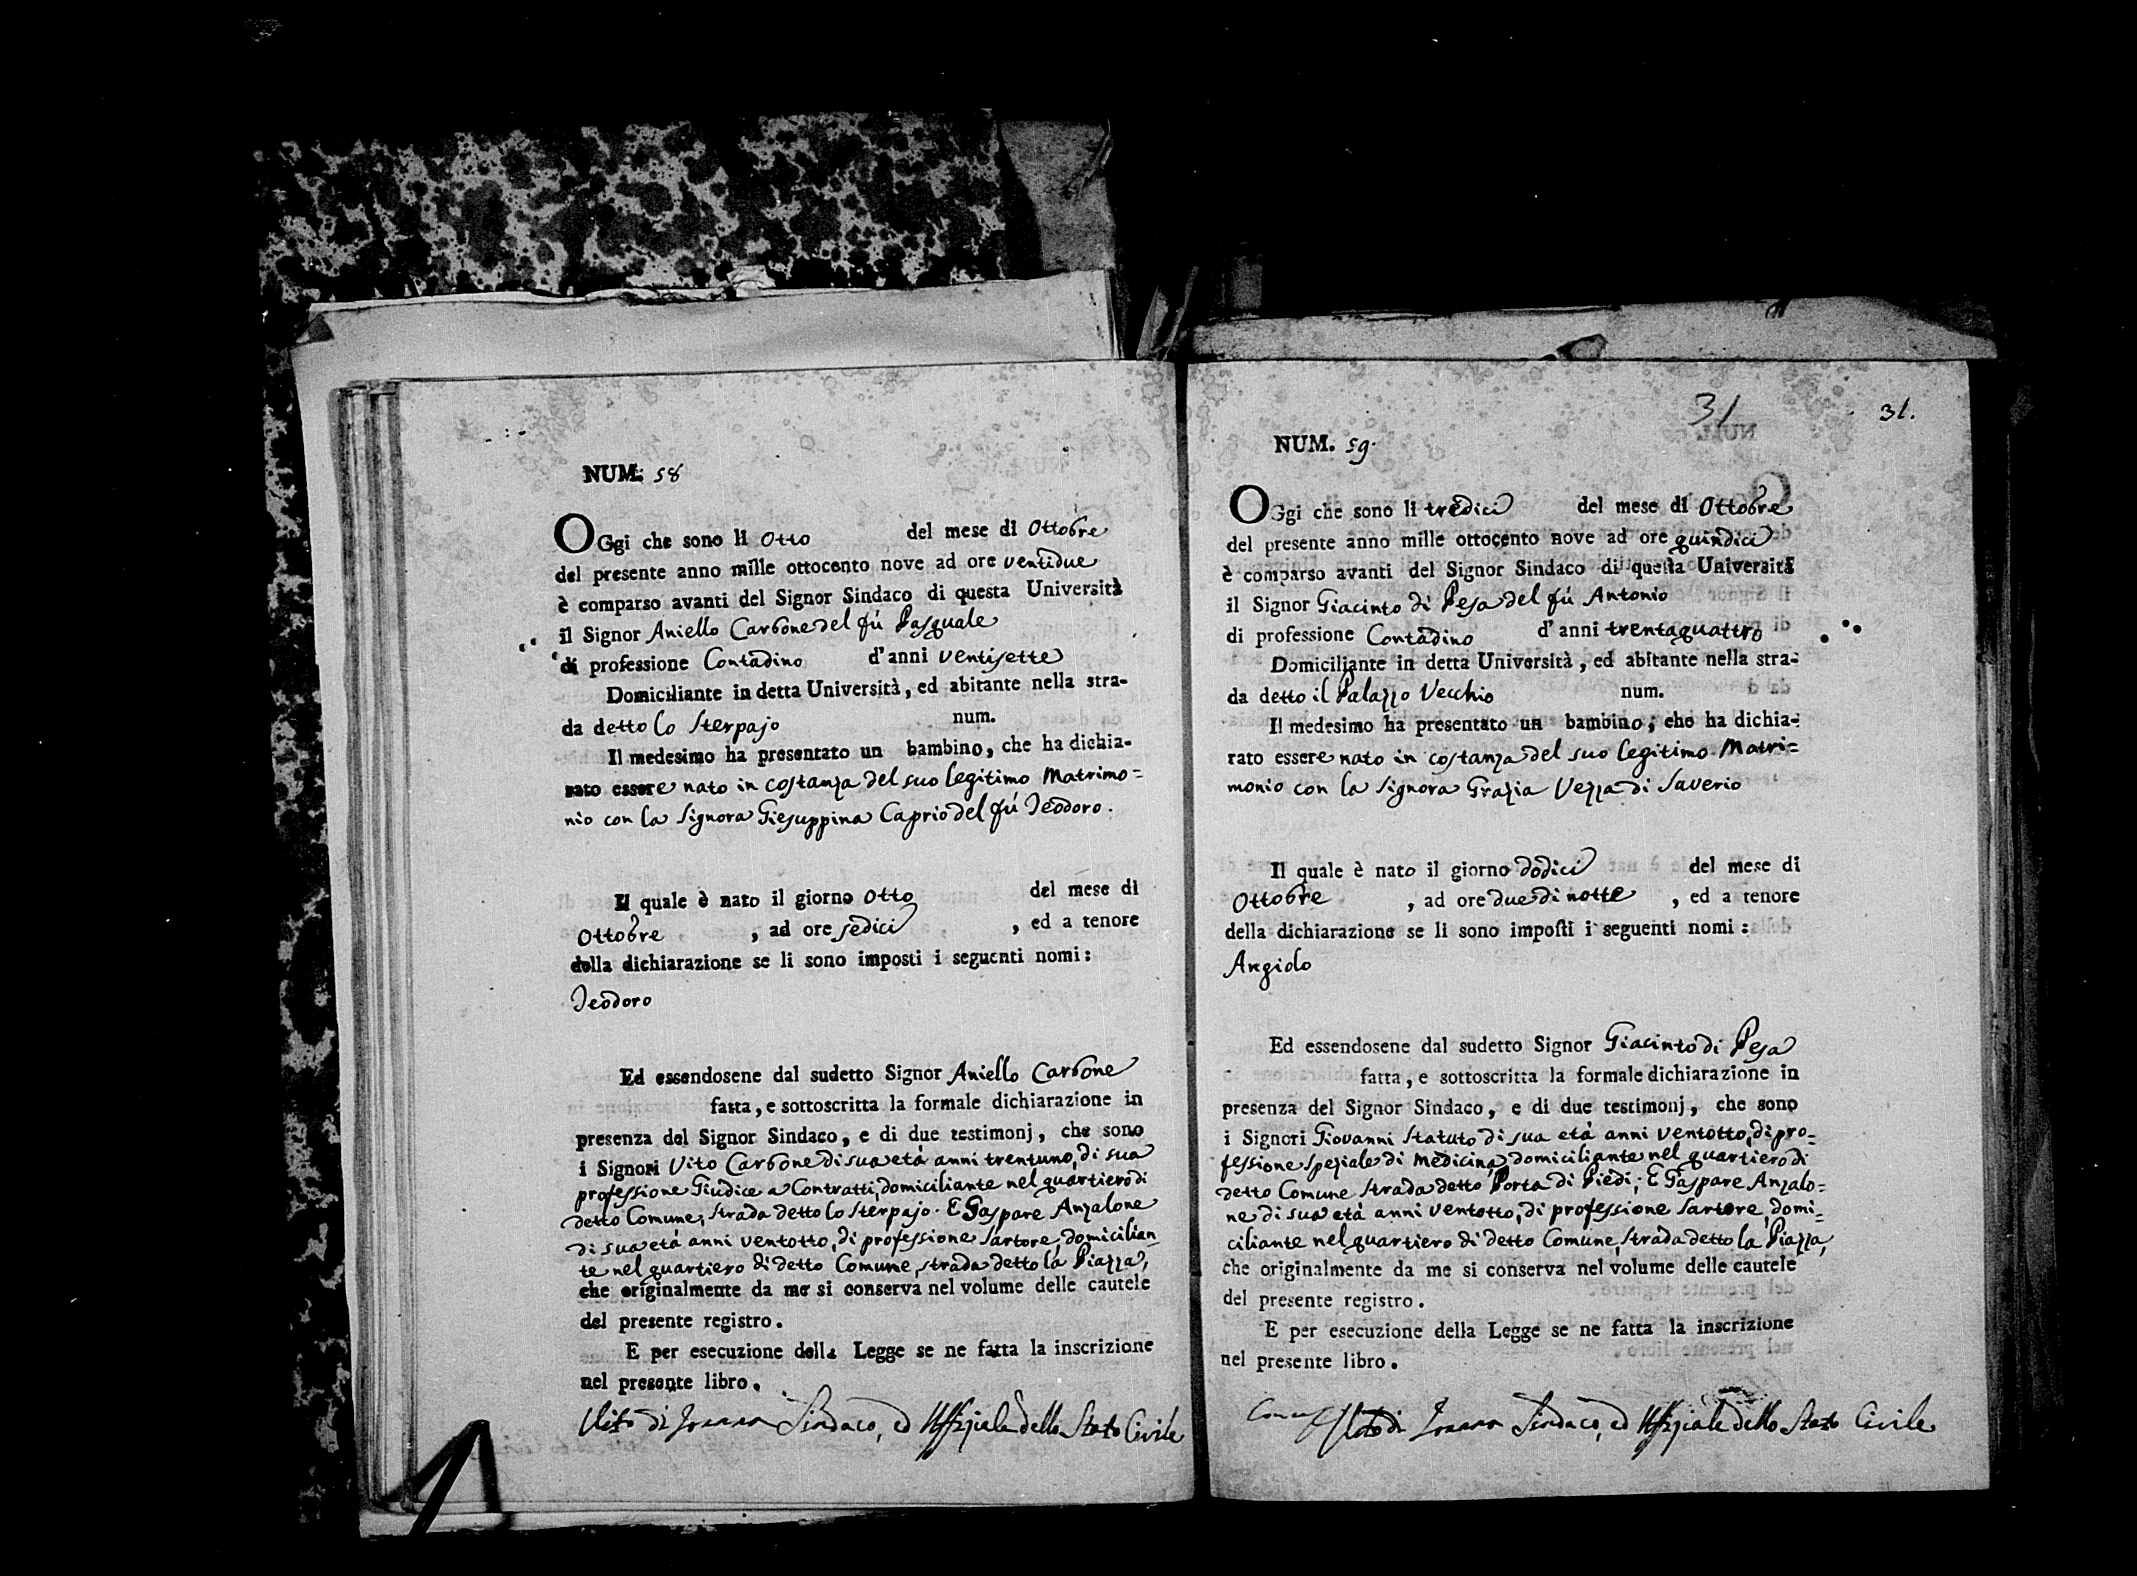 NUM. 58
OGgi che sono li Otto del mese di Ottobre
del presente anno mille ottocento nove ad ore ventidue
è comparso avanti del Signor Sindaco di questa Università
il Signor Aniello Carbone del fú Pasquale
di professione Contadino d'anni ventisette
Domiciliante in detta Università, ed abitante nella stra-
da detto lo Sterpajo num.
Il medesimo ha presentato un bambino, che ha dichia-
rato essere nato in costanza del suo legitimo Matrimo=
nio con la Signora Giesuppina Caprio del fú Teodoro.
Il quale è nato il giorno Otto del mese di
Ottobre, ad ore sedici, ed a tenore
della dichiarazione se li sono imposti i seguenti nomi:
Teodoro
Ed essendosene dal sudetto Signor Aniello Carbone
fatta, e sottoscritta la formale dichiarazione in
presenza del Signor Sindaco, e di due testimonj, che sono
i Signori Vito Carbone di sua età anni trentuno, di sua
professione Giudice a Contratti, domiciliante nel quartiero di
detto Comune, strada detto lo Sterpajo. E Gaspare Anzalone
di sua età anni ventotto, di professione Sartore, domicilian_
te nel quartiero di detto Comune, strada detto la Piazza,
che originalmente da me si conserva nel volume delle cautele
del presente registro.
E per esecuzione della Legge se ne fatta la inscrizione
nel presente libro.
Vito di Sindaco, ed Uffiziale dello Stato Civile
31 31.
NUM. 59.
OGgi che sono li tredici del mese di Ottobre
del presente anno mille ottocento nove ad ore quindici
è comparso avanti del Signor Sindaco di questa Università
il Signor Giacinto di Pesa del fú Antonio
di professione Contadino d'anni trentaquattro
Domiciliante in detta Università, ed abitante nella stra-
da detto il Palazzo Vecchio num.
Il medesimo ha presentato un bambino, che ha dichia-
rato essere nato in costanza del suo legitimo Matri=
monio con la Signora Grazia Vezza di Saverio
Il quale è nato il giorno dodici del mese di
Ottobre, ad ore due di notte, ed a tenore
della dichiarazione se li sono imposti i seguenti nomi:
Angiolo
Ed essendosene dal sudetto Signor Giacinto di Pesa
fatta, e sottoscritta la formale dichiarazione in
presenza del Signor Sindaco, e di due testimonj, che sono
i Signori Giovanni Statuto di sua età anni ventotto, di pro=
fessione speziale di Medicina, domiciliante nel quartiero di
detto Comune strada detto Porta di Piedi; E Gaspare Anzalo=
ne di sua età anni ventotto, di professione Sartore, domi=
ciliante nel quartiero di detto Comune, strada detto la Piazza,
che originalmente da me si conserva nel volume delle cautele
del presente registro.
E per esecuzione della Legge se ne fatta la inscrizione
nel presente libro.
Vito di Sindaco, ed Uffiziale dello Stato Civile